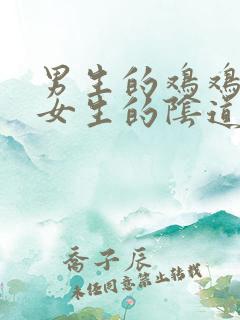 男生的鸡鸡
女生的陰道
喬子辰
未任同意禁止转载